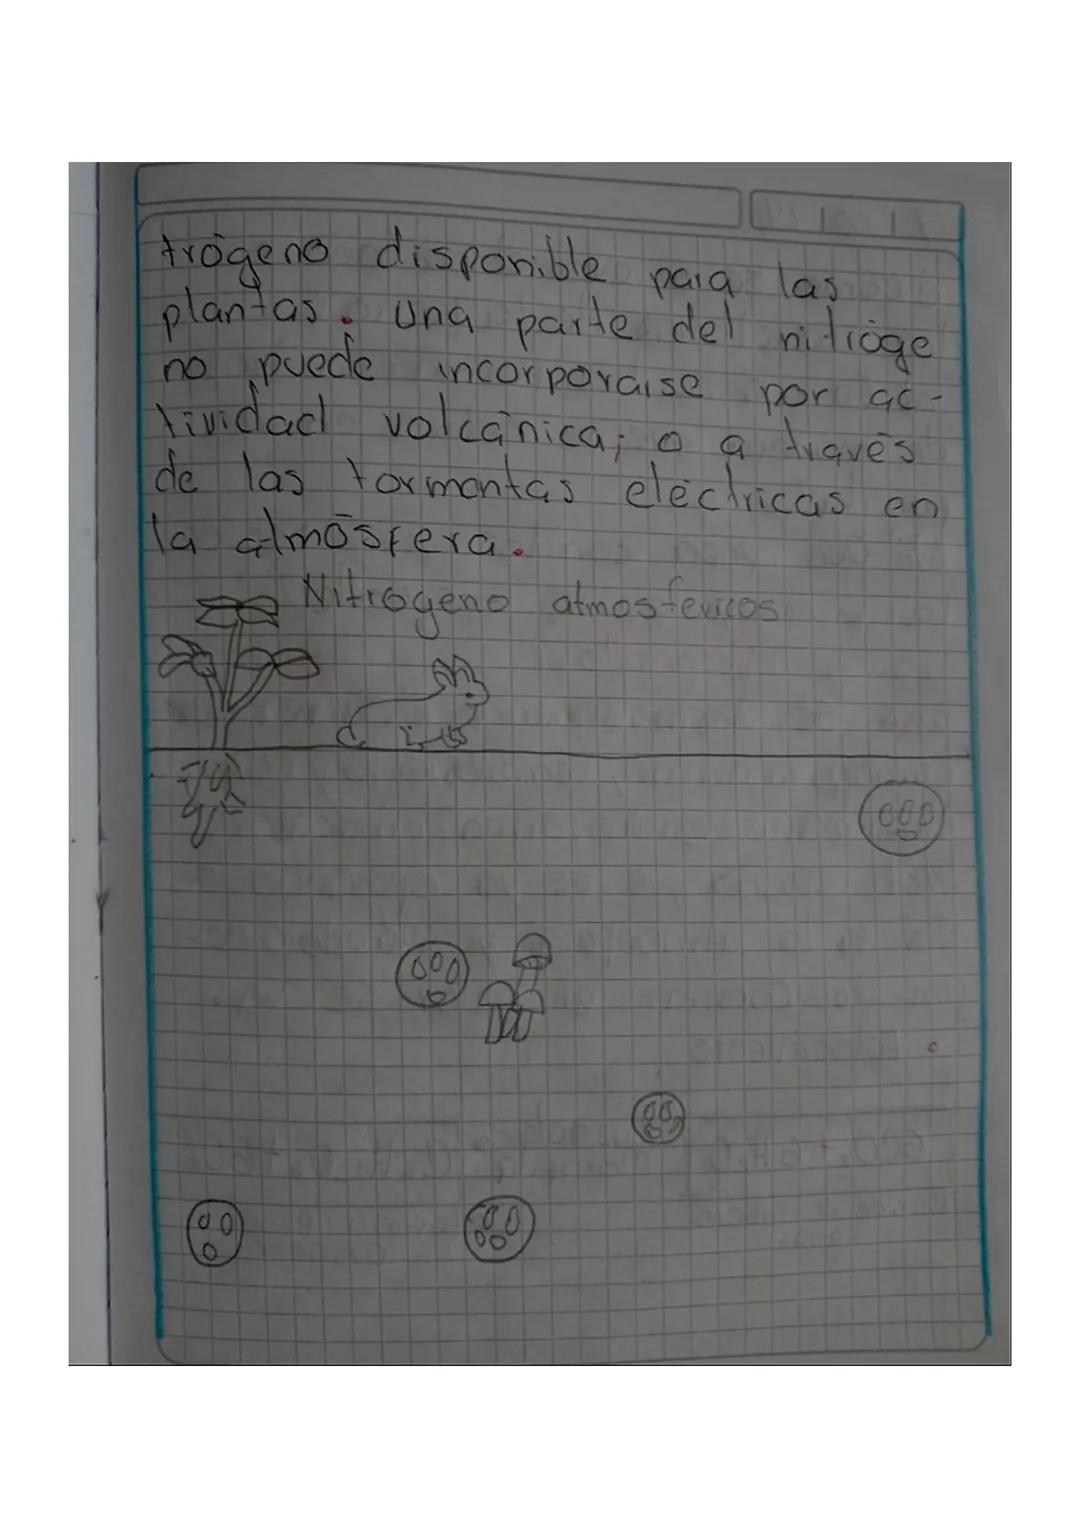 trógeno disponible para las
plantas. Una parte del nitróge
no puede incorporarse por ac-
tividad volcánica; o a través
de las tormentas eléctricas en
la atmósfera.
Nitrogeno atmosfericos